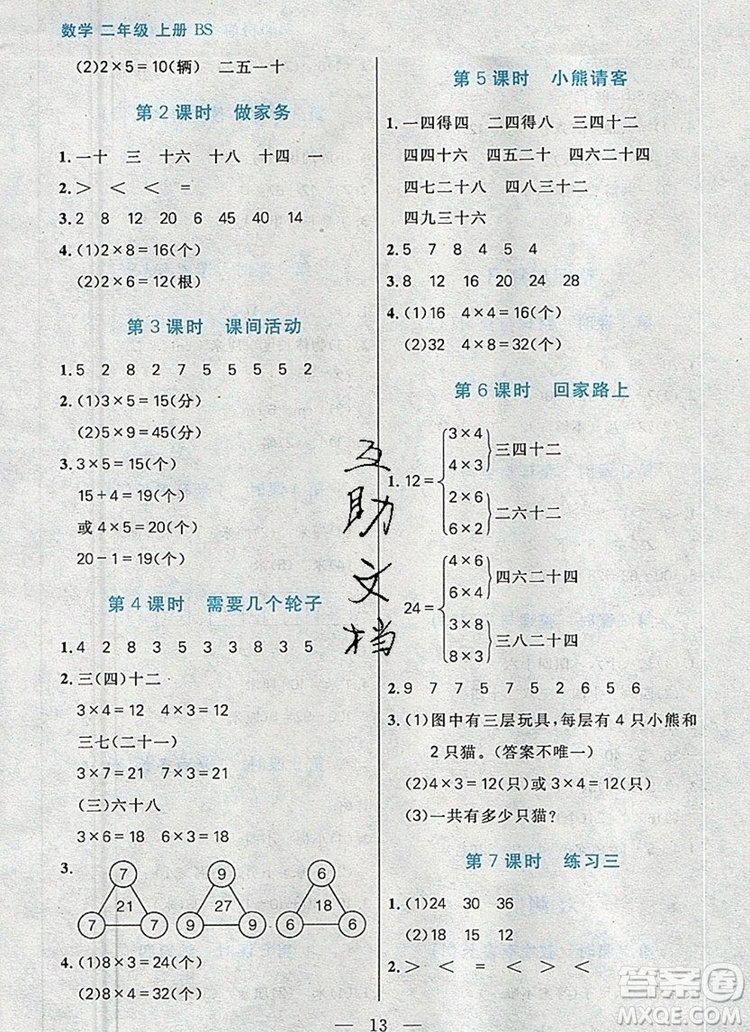 数学 二年级 上册 BS
(2)2×5=10(辆) 二五一十
第2课时 做家务
1.一十 三 十六 十八 十四 一
2.> < < =
3.2 8 12 20 6 45 40 14
4.(1)2×8=16(个)
(2)2×6=12(根)
第3课时 课间活动
1.5 2 8 2 7 5 5 5 5 2
2.(1)3×5=15(分)
(2)5×9=45(分)
3.3×5=15(个)
15+4=19(个)
或4×5=20(个)
20-1=19(个)
第4课时 需要几个轮子
1.4 2 8 3 5 3 3 8 3 5
2.三(四)十二
3×4=12 4×3=12
三七(二十一)
3×7=21 7×3=21
(三)六十八
3×6=18 6×3=18
3.
7 9 6
21 27 18
7 7 9 9 6 6
4.(1)8×3=24(个)
(2)4×8=32(个)
第5课时 小熊请客
1.一四得四 二四得八 三四十二
四四十六 四五二十 四六二十四
四七二十八 四八三十二
四九三十六
2.5 7 8 4 5 4
3.8 12 16 20 24 28
4.(1)16 4×4=16(个)
(2)32 4×8=32(个)
第6课时 回家路上
3×4
三四十二
4×3
1.12=
2×6
二六十二
6×2
4×6
四六二十四
6×4
24=
3×8
三八二十四
8×3
2.9 7 7 5 8 2 6 5 6
3.(1)图中有三层玩具,每层有4只小熊和
2只猫。(答案不唯一)
(2)4×3=12(只)或3×4=12(只)
(3)一共有多少只猫?
第7课时 练习三
1.(1)24 30 36
(2)18 15 12
2.> < = < > <
13
互助文档
答案圈
MXQE.COM